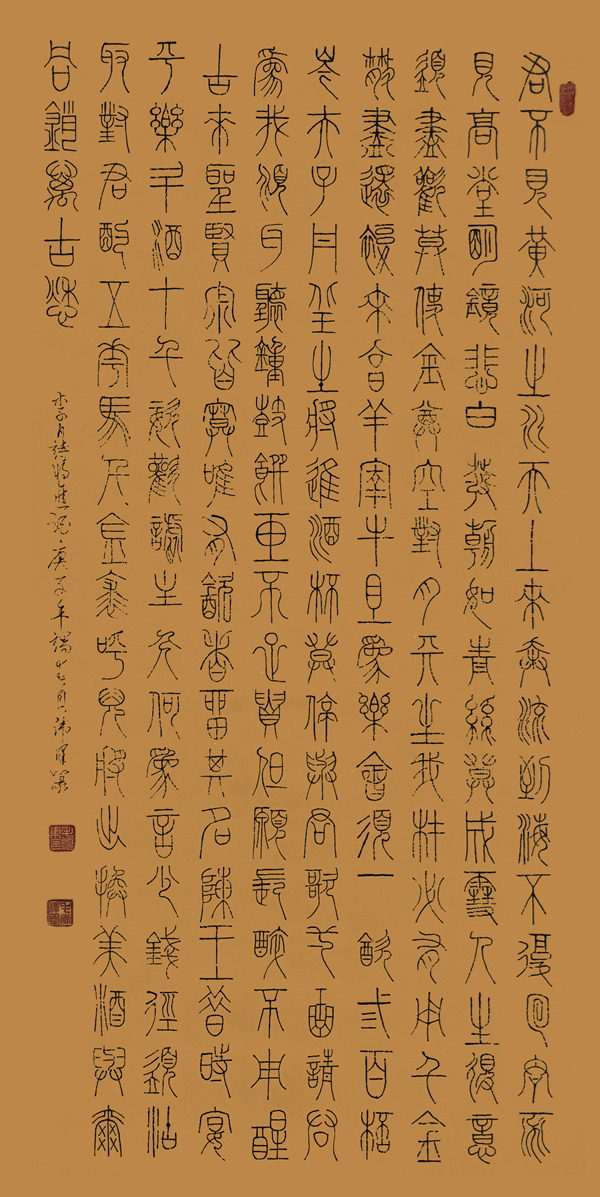 君不見黃河之水天上來奔流到海不復回君不
見高堂明鏡悲白髮朝如青絲莫成雪人生得意
須盡歡莫使金尊空對月天生我材必有用千金
散盡還復來烹羊宰牛且為樂會須一飲弎百桮
岑夫子丹丘生將進酒杯莫停與君歌弌曲請君
為我傾耳聽鐘鼓饌玉不足貴但願長醉不用醒
古來聖賢寂皆寞唯有飲者留其名陳王昔時宴
平樂斗酒十千恣歡謔主人何為言少錢徑須沽
取對君酌五花馬千金裘呼兒將出換美酒與爾
同銷萬古愁
李白詩將進酒庚子年端午